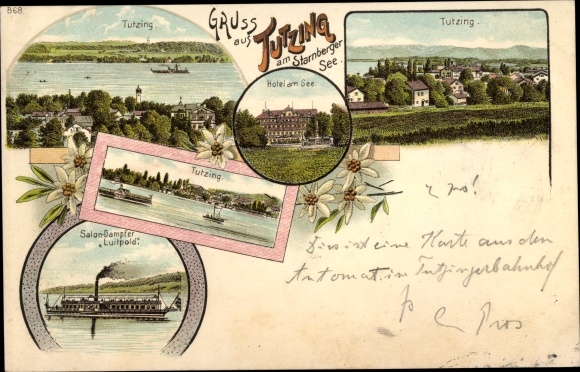 868.
Tutzing.
GRUSS
aus
TUTZING
am Starnberger
See.
Tutzing.
Hotel am See.
Tutzing.
Salon-Dampfer
„Luitpold".
Dies ist eine Karte aus dem
Automat in Tutzingerbahnhof